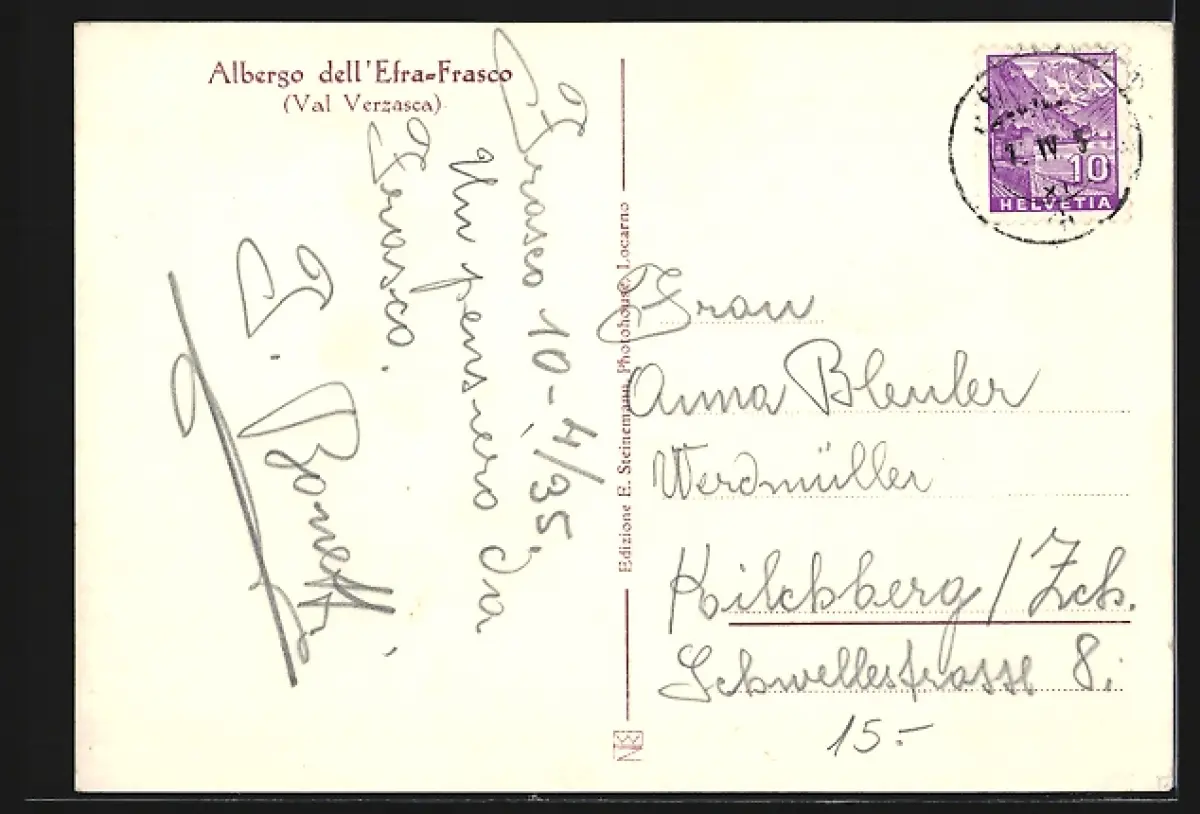 Albergo dell'Efra-Frasco
(Val Verzasca)
Frasco 10-4/35.
Un pensiero da
Frasco.
Edizione E. Steinemann, Photohouse, Locarno
10
HELVETIA
IV
Frau
Anna Bleuler
Werdmüller
Kilchberg/Zch.
Schwellestrasse 8;
15.-